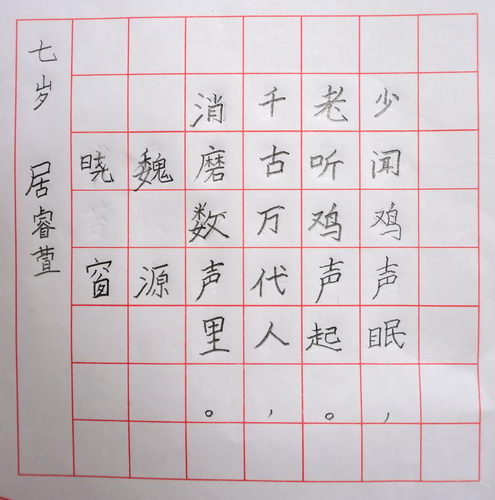 少闻鸡声眠，
老听鸡声起。
千古万代人，
消磨数声里。
魏源
晓窗
七岁 居睿萱